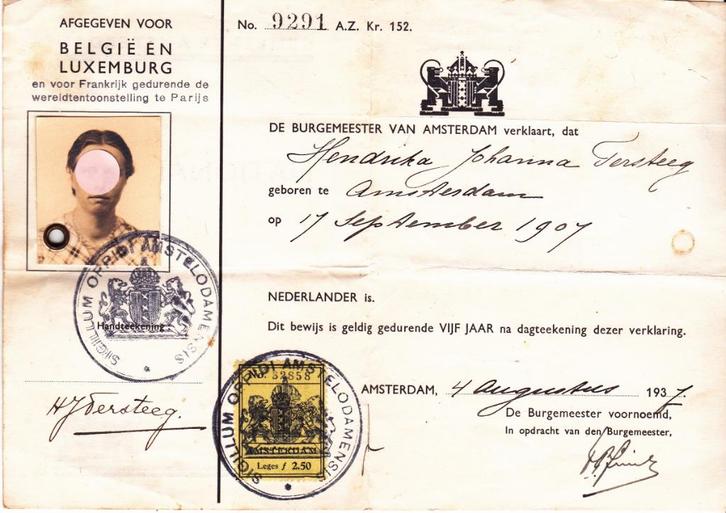 AFGEGEVEN VOOR
BELGIË EN
LUXEMBURG
en voor Frankrijk gedurende de
wereldtentoonstelling te Parijs
No. 9291 A.Z. Kr. 152.
DE BURGEMEESTER VAN AMSTERDAM verklaart, dat
Hendrika Johanna Tersteeg
geboren te Amsterdam
op 17 September 1907
NEDERLANDER is.
Dit bewijs is geldig gedurende VIJF JAAR na dagteekening dezer verklaring.
AMSTERDAM, 4 augustus 1937
De Burgemeester voornoemd,
In opdracht van den Burgemeester,
SIGILLUM OPPIDI AMSTELODAMENSIS
Handteekening
HJTersteeg.
SIGILLUM OPPIDI AMSTELODAMENSIS
No. 52658
AMSTERDAM
Leges ƒ 2.50